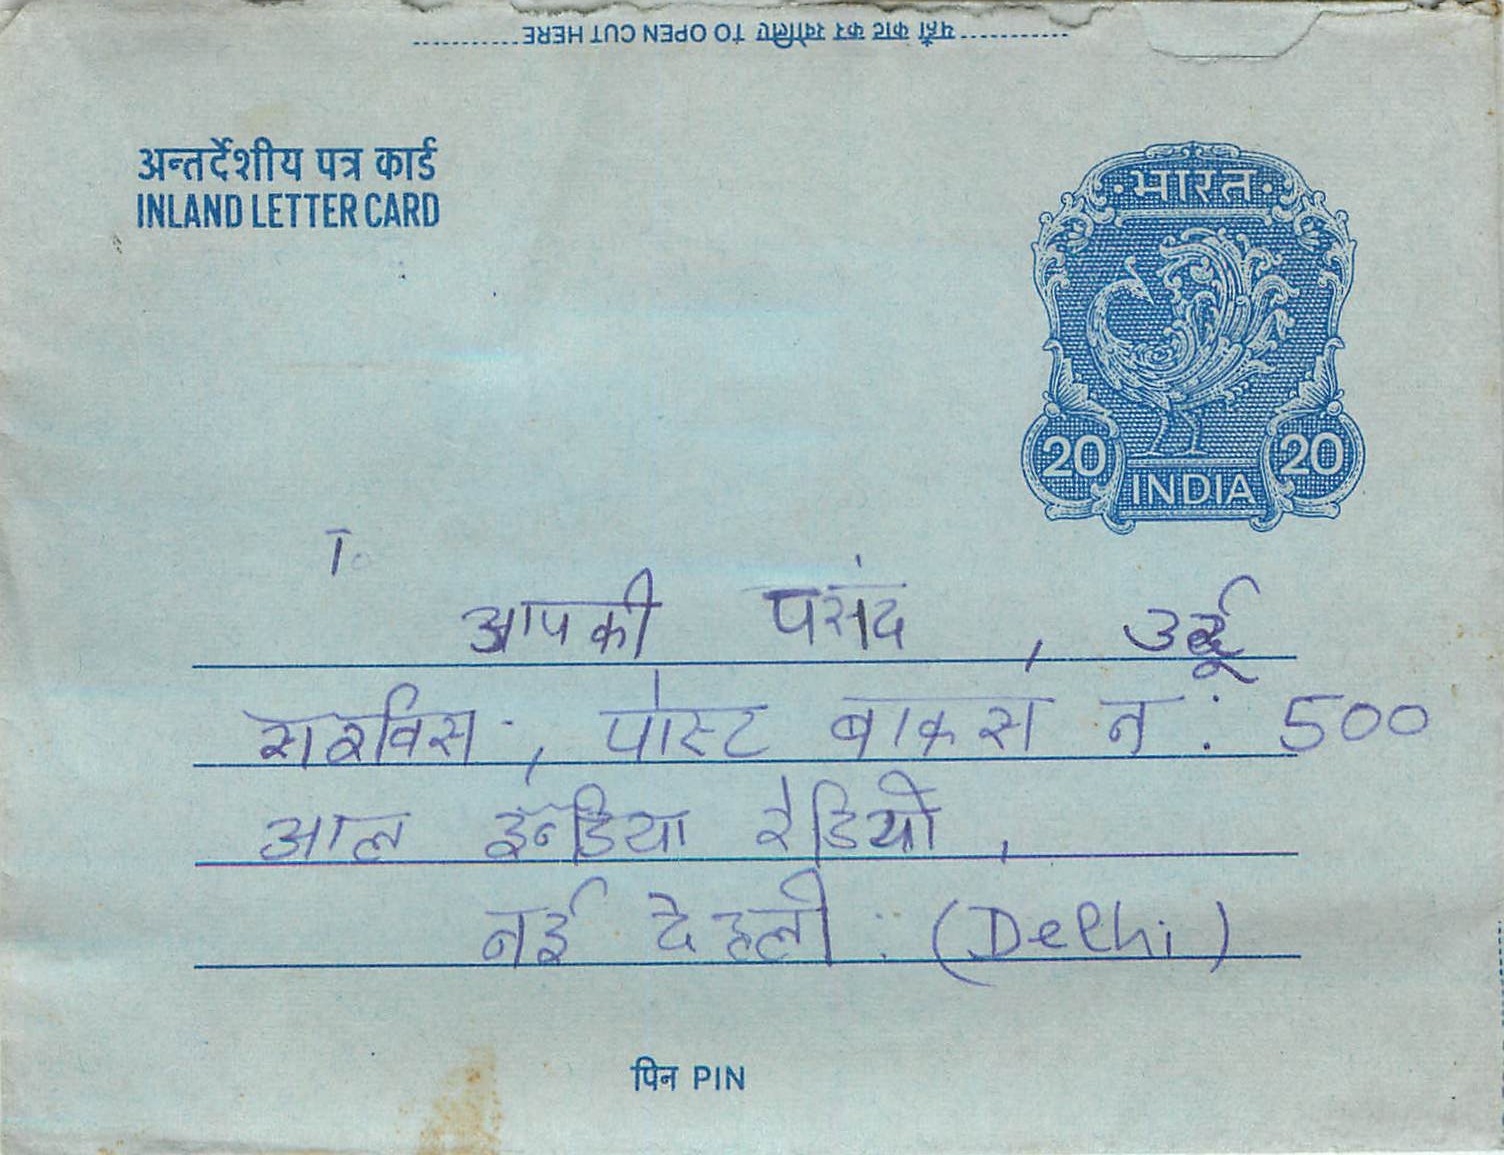 यहाँ काट कर खोलिए TO OPEN CUT HERE
अन्तर्देशीय पत्र कार्ड
INLAND LETTER CARD
भारत
20 20
INDIA
To
आपकी पसंद , उर्दू
सरविस , पोस्ट बाकस न : 500
आल इन्डिया रेडियो ,
नई देहली : (Delhi)
पिन PIN